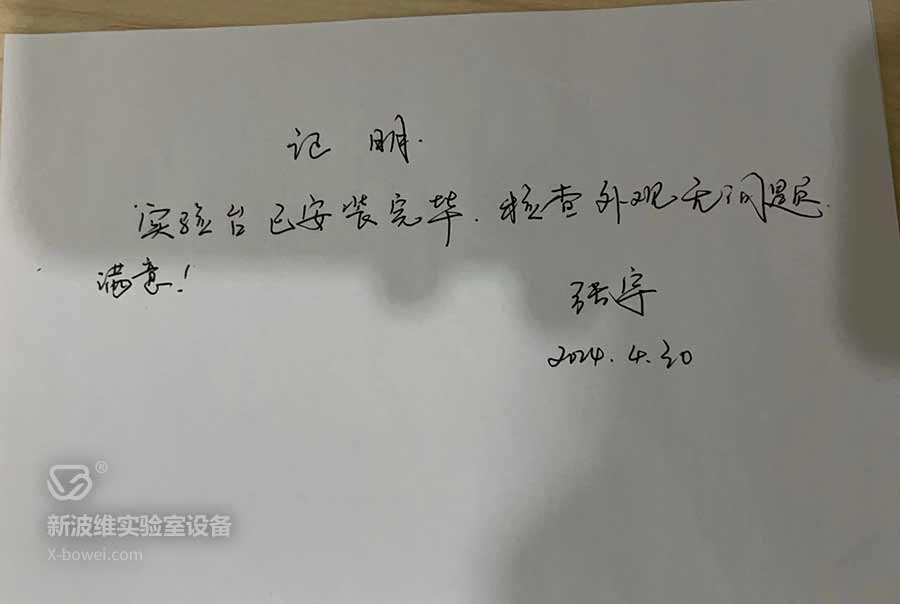 记 明.
实验台已安装完毕.检查外观无问题.
满意!
张宇
2024.4.30
新波维实验室设备
X-bowei.com